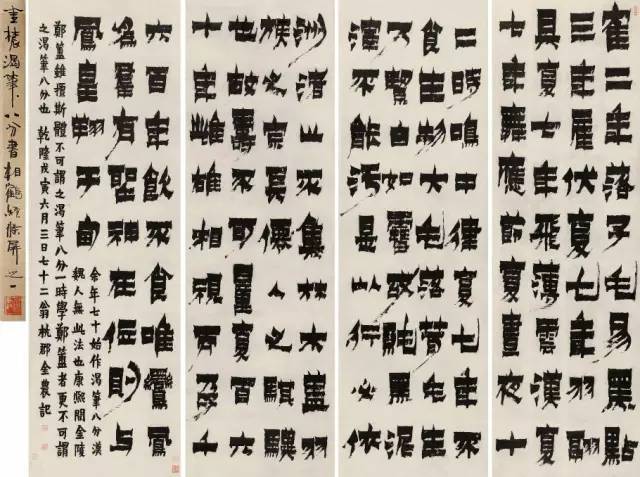 寉二年落子毛易黑點
三年產伏夏七年羽翮
具夏七年飛薄雲漢夏
七年舞應節夏晝夜十
二時鳴中律夏
食生 大毛落茸毛生
潔白如雪 黑泥
不能污是以行必依
洲渚止不集林木蓋羽
族之宗僊人之騏驥
也 壽可量夏百六
十年雌雄相視而孕千
六百年飲不食唯鳳
為羣有聖 在位則与
鳳皇翔于甸
余年七十始作渴筆八分漢
魏人無此法也康熙間金陵
鄭簠雖擅斯體不可謂之渴筆八分一時學鄭簠者更不可謂
之渴筆八分也 乾隆戊寅六月三日七十二翁杭郡金農記
金農渴筆八分書相鶴經條屏之一